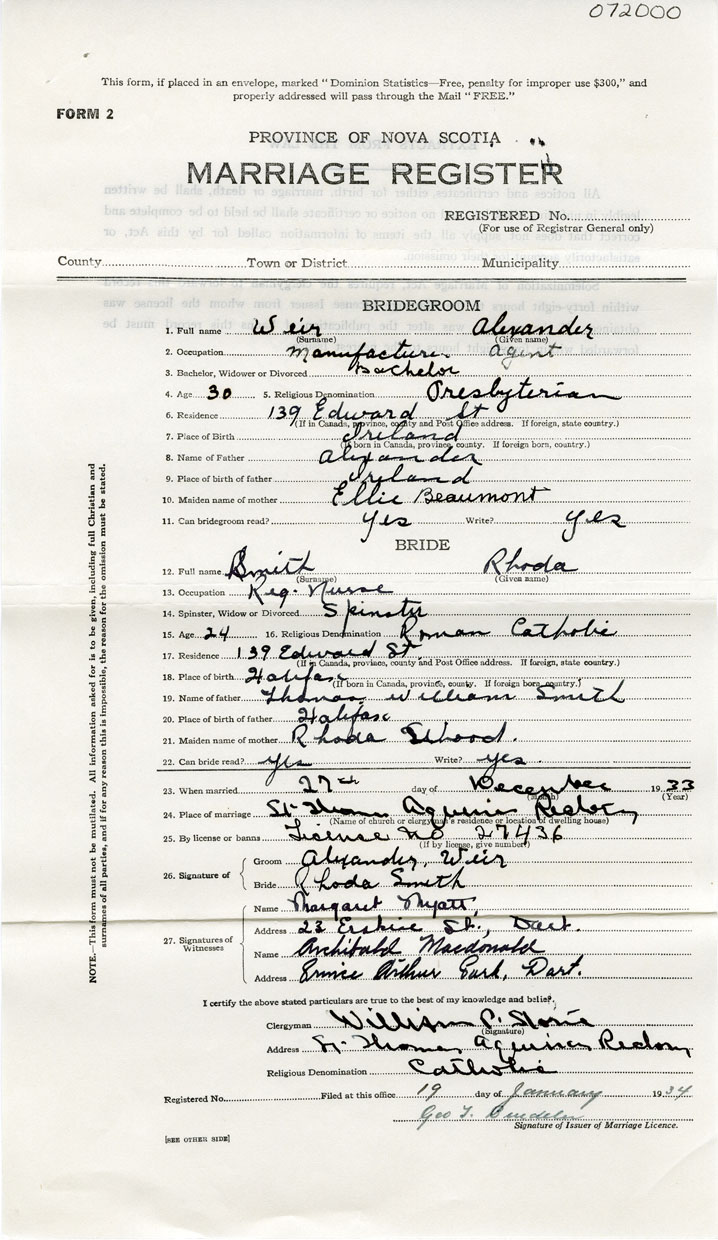 072000
This form, if placed in an envelope, marked "Dominion Statistics—Free, penalty for improper use $300," and
properly addressed will pass through the Mail "FREE."
FORM 2
PROVINCE OF NOVA SCOTIA
MARRIAGE REGISTER
REGISTERED No.
(For use of Registrar General only)
County Town or District Municipality
BRIDEGROOM
1. Full name Weir Alexander
(Surname) (Given name)
2. Occupation Manufacture Agent
3. Bachelor, Widower or Divorced Bachelor
4. Age 30 5. Religious Denomination Presbyterian
6. Residence 139 Edward St
(If in Canada, province, county and Post Office address. If foreign, state country.)
7. Place of Birth Ireland
(If born in Canada, province, county. If foreign born, country.)
8. Name of Father Alexander
9. Place of birth of father Ireland
10. Maiden name of mother Ellie Beaumont
11. Can bridegroom read? Yes Write? Yes
BRIDE
12. Full name Smith Rhoda
(Surname) (Given name)
13. Occupation Reg. Nurse
14. Spinster, Widow or Divorced Spinster
15. Age 24 16. Religious Denomination Roman Catholic
17. Residence 139 Edward St.
(If in Canada, province, county and Post Office address. If foreign, state country.)
18. Place of birth Halifax
(If born in Canada, province, county. If foreign born, country.)
19. Name of father Thomas William Smith
20. Place of birth of father Halifax
21. Maiden name of mother Rhoda
22. Can bride read? yes Write? yes
23. When married 27th day of December 1933
(Month) (Year)
24. Place of marriage St. Thomas Aquinas Rectory
(Name of church or clergyman's residence or location of dwelling house)
25. By license or banns License no 27436
(If by license, give number)
26. Signature of Groom Alexander, Weir
Bride Rhoda Smith
27. Signatures of Witnesses
Name Margaret Myatt,
Address 23 Erskine St., Dart.
Name Archibald Macdonald
Address Arthur Dart.
NOTE.—This form must not be mutilated. All information asked for is to be given, including full Christian and
surnames of all parties, and if for any reason this is impossible, the reason for the omission must be stated.
I certify the above stated particulars are true to the best of my knowledge and belief.
Clergyman William
(Signature)
Address St. Thomas Aquinas Rectory
Religious Denomination Catholic
Registered No. Filed at this office 19 day of January 1934
Geo
Signature of Issuer of Marriage Licence.
[SEE OTHER SIDE]